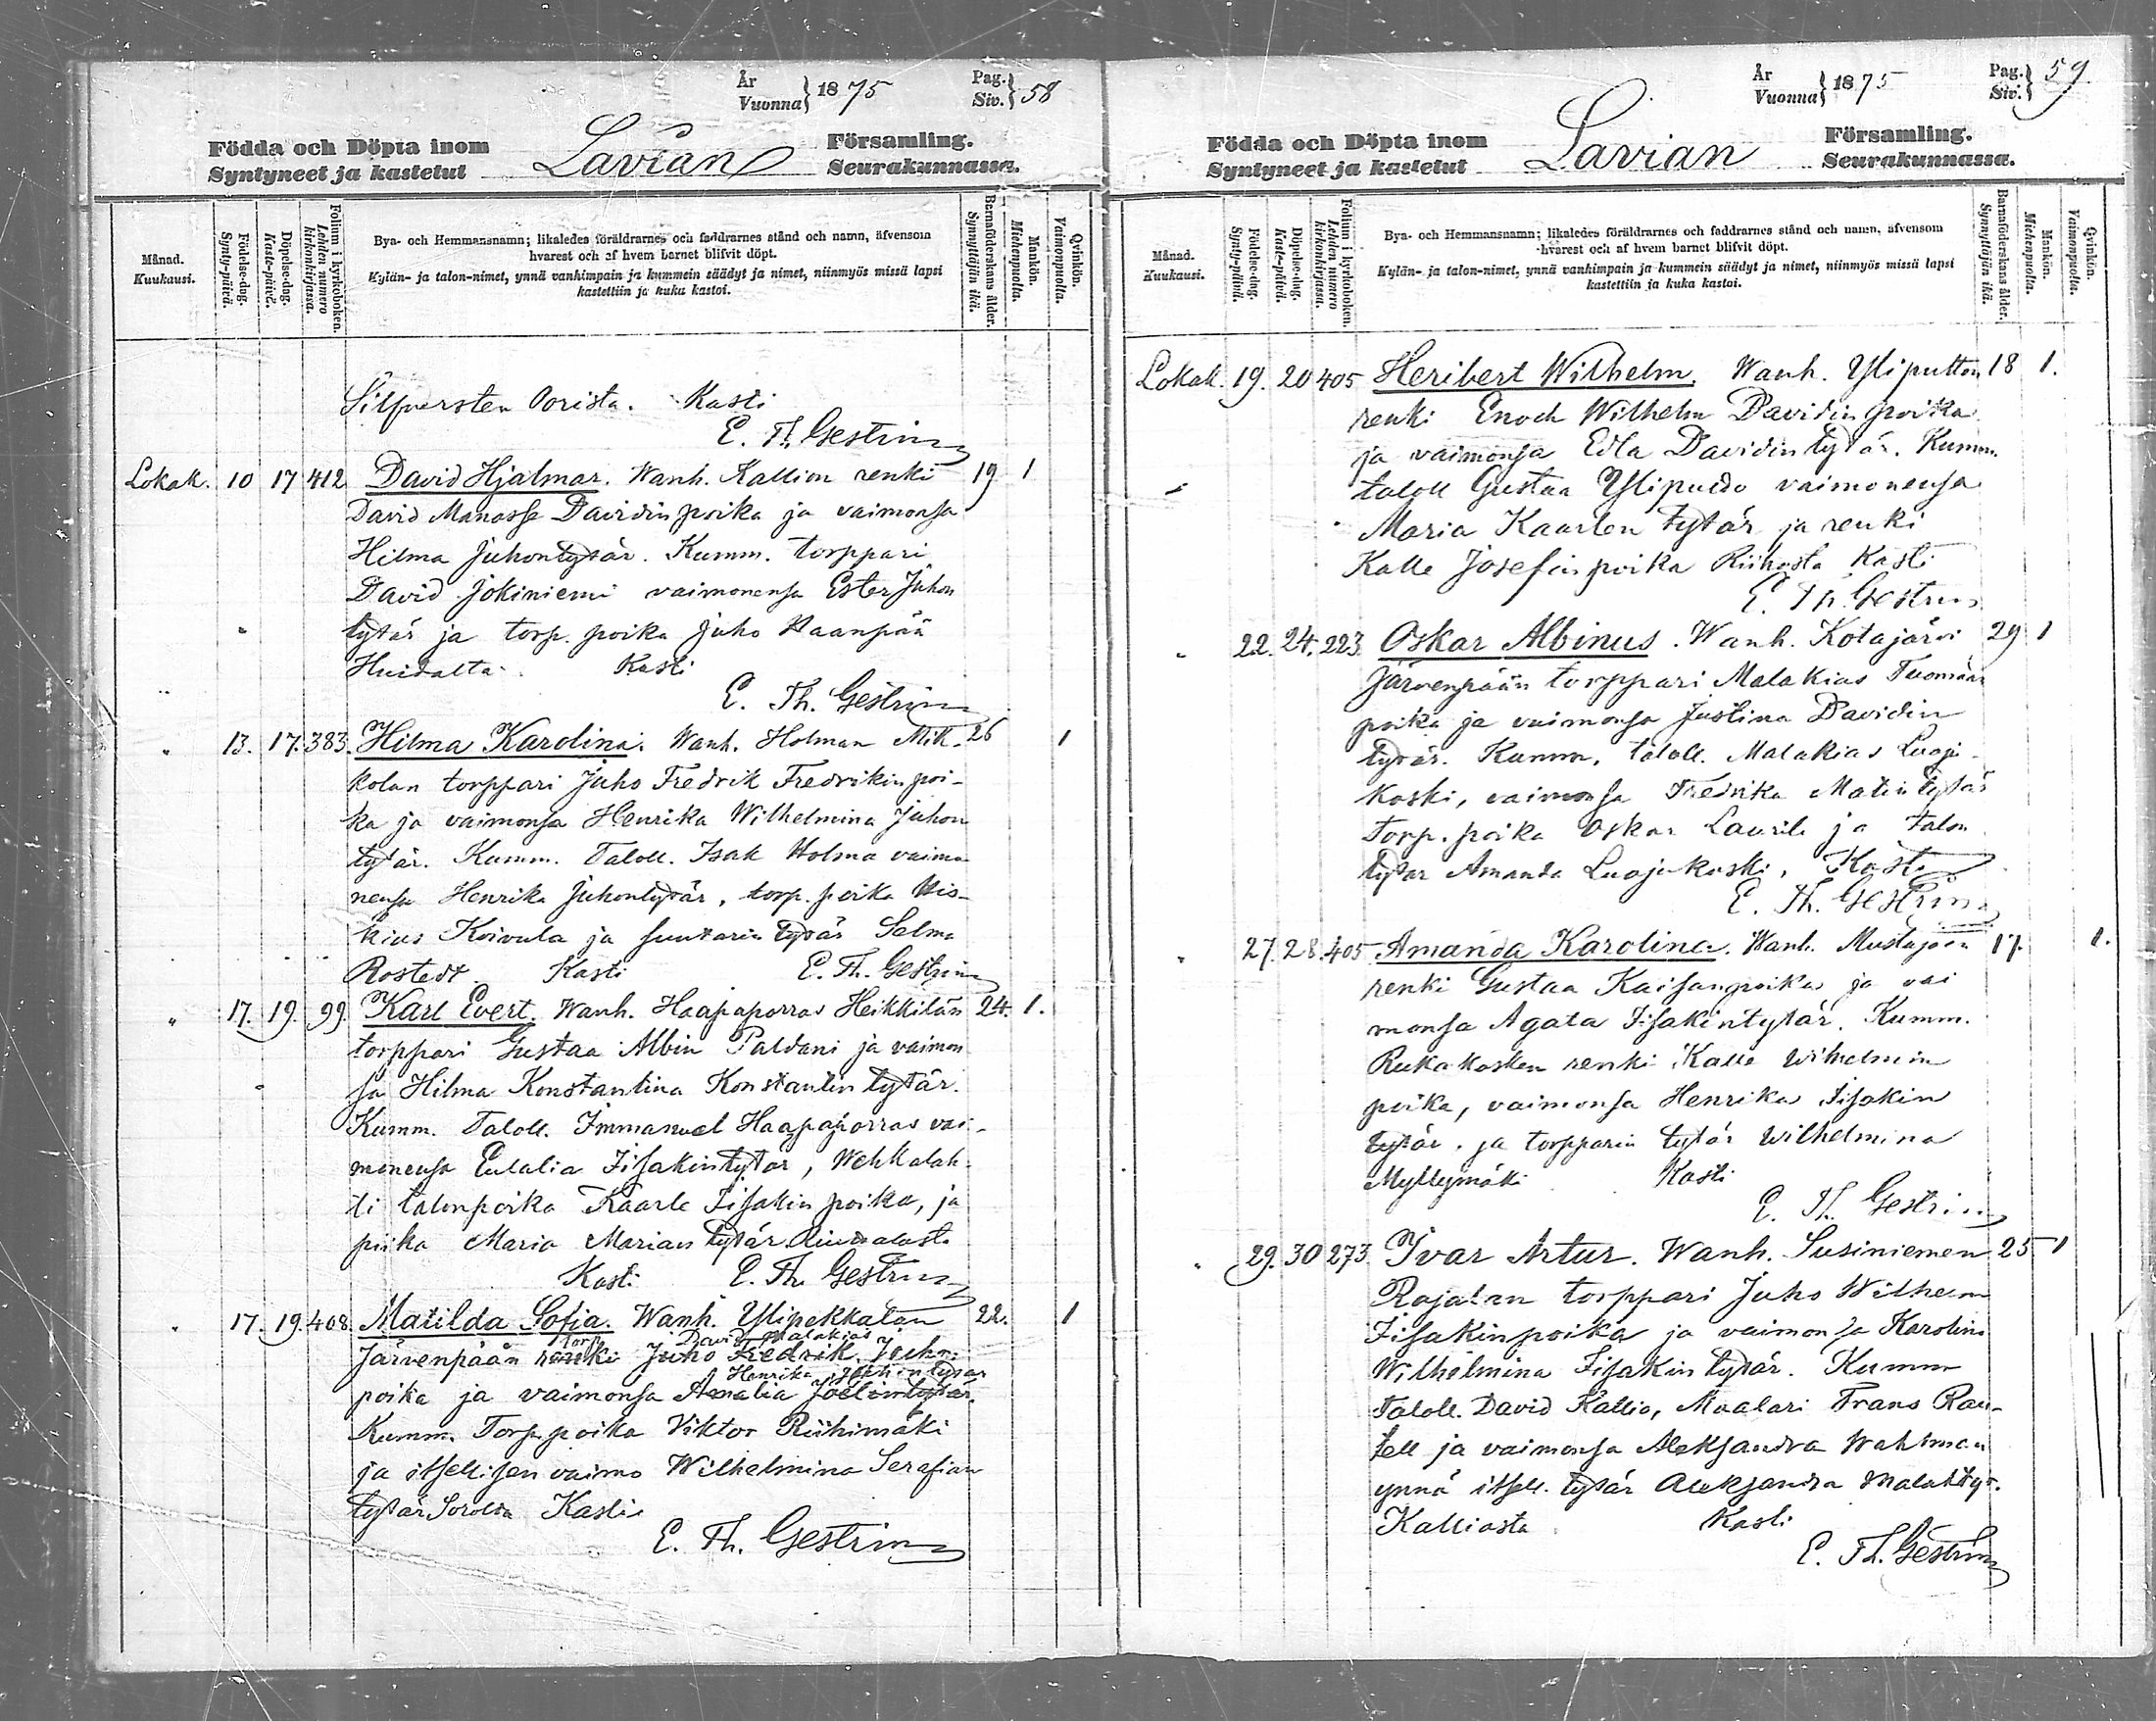 År
Vuonna } 1875
Pag.
Siv. } 58
Födda och Döpta inom
Syntyneet ja kastetut
Lavian
Församling.
Seurakunnassa.
Månad.
Kuukausi.
Födelse-dag.
Synty-päivä.
Döpelse-dag.
Kaste-päivä.
Folium i kyrkoboken.
Lehden numero kirkonkirjassa.
Bya- och Hemmansnamn; likaledes föräldrarnes och faddrarnes stånd och namn, äfvensom
hvarest och af hvem barnet blifvit döpt.
Kylän- ja talon-nimet, ynnä vanhimpain ja kummein säädyt ja nimet, niinmyös missä lapsi
kastettiin ja kuka kastoi.
Barnaföderskans ålder.
Synnyttäjän ikä.
Mankön.
Miehenpuolta.
Qvinkön.
Vaimonpuolta.
Silfversten Porista. Kasti
E. Th. Gestrin
Lokak. 10 17 412 David Hjalmar. Wanh. Kallion renki 19 1
David Manasse Davidin poika ja vaimonsa
Hilma Juhontytär. Kumm. torppari
David Jokiniemi vaimonensa Ester Juhon
tytär ja torp. poika Juho Haanpää
Huidalta. Kasti
E. Th. Gestrin
" 13. 17. 383. Hilma Karolina. Wanh. Holman Mik- 26 1
kolan torppari Juho Fredrik Fredrikin poi-
ka ja vaimonsa Henrika Wilhelmina Juhon
tytär. Kumm. Taloll. Isak Holma vaimo-
nensa Henrika Juhontytär, torp. poika His-
kias Koivula ja suutarin tytär Salma
Rostedt. Kasti E. Th. Gestrin
" 17. 19. 99. Karl Evert. Wanh. Haapaporras Heikkilän 24. 1.
torppari Gustaa Albin Paldani ja vaimon
sa Hilma Konstantina Konstantin tytär.
Kumm. Taloll. Immanuel Haapaporras vai-
monensa Eulalia Iisakintytär, Wehkalah-
ti talonpoika Kaarle Iisakin poika, ja
piika Maria Marian tytär
Kasti E. Th. Gestrin
" 17. 19. 408. Matilda Sofia. Wanh. Ylipekkalan 22. 1
torp. David Malakias
Järvenpään renki Juho Fredrik Joeln
Henrika
poika ja vaimonsa Amalia Joelintytär.
Kumm. Torp. poika Viktor Riihimäki
ja itsellisen vaimo Wilhelmina Serafian
tytär Sorolta Kasti
E. Th. Gestrin
År
Vuonna } 1875
Pag.
Siv. } 59.
Födda och Döpta inom
Syntyneet ja kastetut
Lavian
Församling.
Seurakunnassa.
Månad.
Kuukausi.
Födelse-dag.
Synty-päivä.
Döpelse-dag.
Kaste-päivä.
Folium i kyrkoboken.
Lehden numero kirkonkirjassa.
Bya- och Hemmansnamn; likaledes föräldrarnes och faddrarnes stånd och namn, äfvensom
hvarest och af hvem barnet blifvit döpt.
Kylän- ja talon-nimet, ynnä vanhimpain ja kummein säädyt ja nimet, niinmyös missä lapsi
kastettiin ja kuka kastoi.
Barnaföderskans ålder.
Synnyttäjän ikä.
Mankön.
Miehenpuolta.
Qvinkön.
Vaimonpuolta.
Lokak. 19. 20 405 Heribert Wilhelm. Wanh. Yliputton 18 1.
renki Enoch Wilhelm Davidin poika
ja vaimonsa Edla Davidin tytär. Kumm.
taloll Gustaa vaimonensa
Maria Kaarlen tytär ja renki
Kalle Josefin poika Kasti
E. Th. Gestrin
" 22. 24. 223 Oskar Albinus. Wanh. Kotajärvi 29 1
Järvenpään torppari Malakias Tuomaan
poika ja vaimonsa Justina Davidin
tytär. Kumm. taloll. Malakias Luoja-
koski, vaimonsa Fredrika Matin tytär
torp. poika Oskar Laurila ja talon
tytar Amanda Luojakoski, Kasti
E. Th. Gestrin
" 27. 28. 405 Amanda Karolina. Wanh. Mustajoen 17. 1.
renki Gustaa Kaisanpoika ja vai
monsa Agata Iisakintytär. Kumm.
Rukakosken renki Kalle Wilhelmin
poika, vaimonsa Henrika Iisakin
tytär. ja torpparin tytär Wilhelmina
Myllymäki Kasti
E. Th. Gestrin
" 29. 30 273. Ivar Artur. Wanh. Susiniemen 25 1
Rajalan torppari Juho Wilhelm
Iisakinpoika ja vaimonsa Karolina
Wilhelmina Iisakin tytär. Kumm
Taloll. David Kallio, Maalari Frans Ran-
tell ja vaimonsa Aleksandra Wahlman
ynnä itsell. tytär Aleksandra Malak.tyt.
Kalliosta Kasti
E. Th. Gestrin